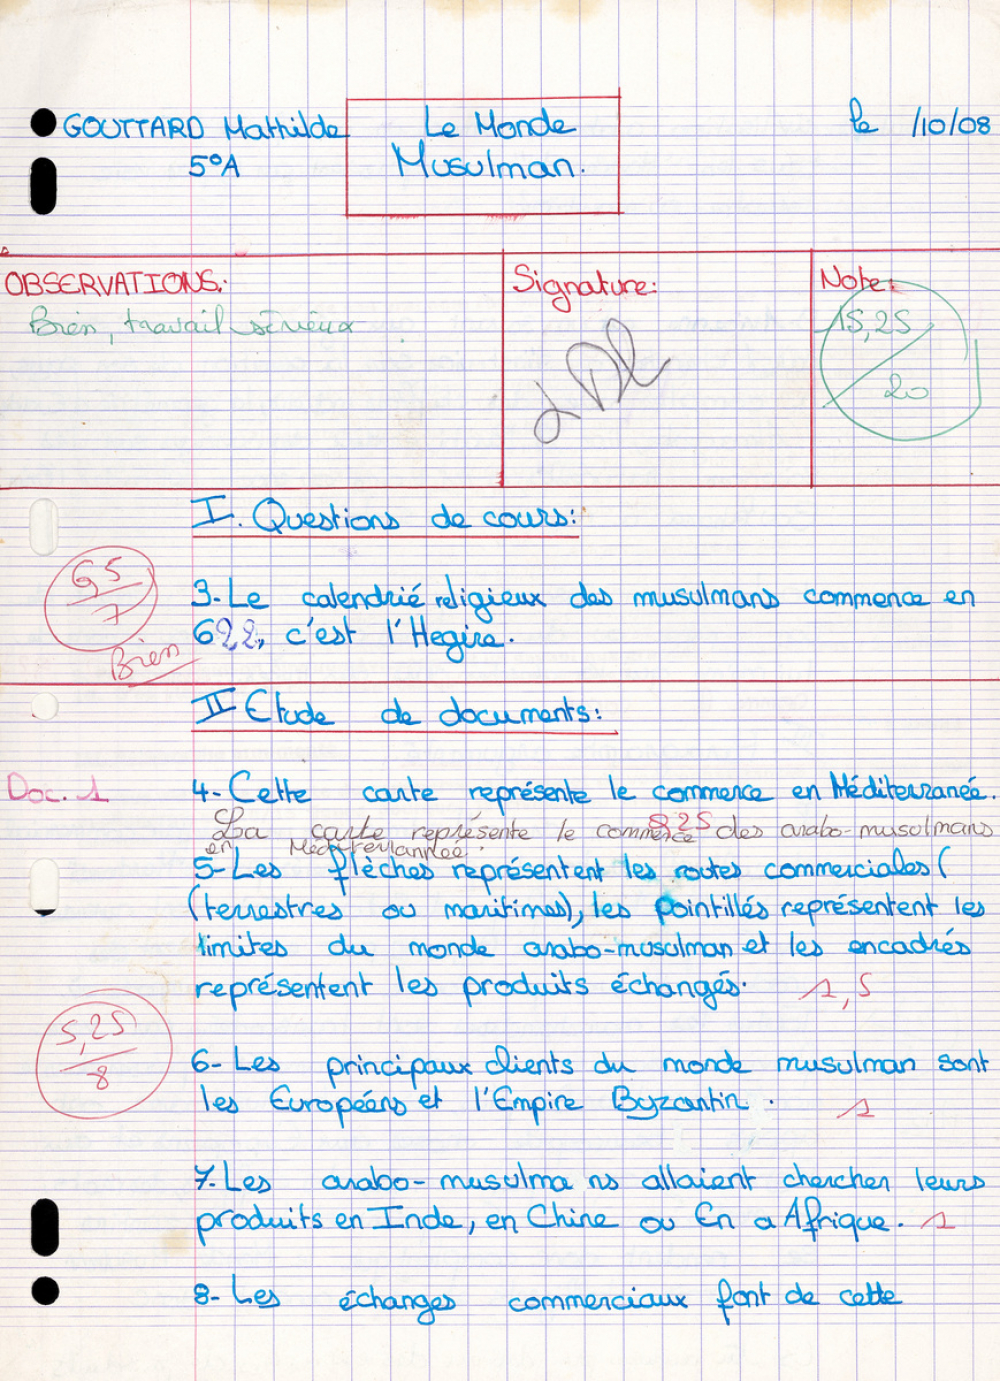 GOUTTARD Mathilde
5°A
Le Monde
Musulman.
le /10/08
OBSERVATIONS:
Bien, travail sérieux
Signature:
Note:
15,25
20
I. Questions de cours:
6,5
7
Bien
3-Le calendrié religieux des musulmans commence en
622, c'est l'Hegire.
II Etude de documents:
Doc. 1
4- Cette carte représente le commerce en Méditerranée.
La carte représente le commerce des arabo-musulmans
en Méditerrannée.
5-Les flèches représentent les routes commerciales (
(terrestres ou maritimes), les pointillés représentent les
limites du monde arabo-musulman et les encadrés
représentent les produits échangés. 1,5
5,25
8
6- Les principaux clients du monde musulman sont
les Européens et l'Empire Byzantin. 1
7-Les arabo-musulmans allaient chercher leurs
produits en Inde, en Chine ou En a Afrique. 1
8- Les échanges commerciaux font de cette